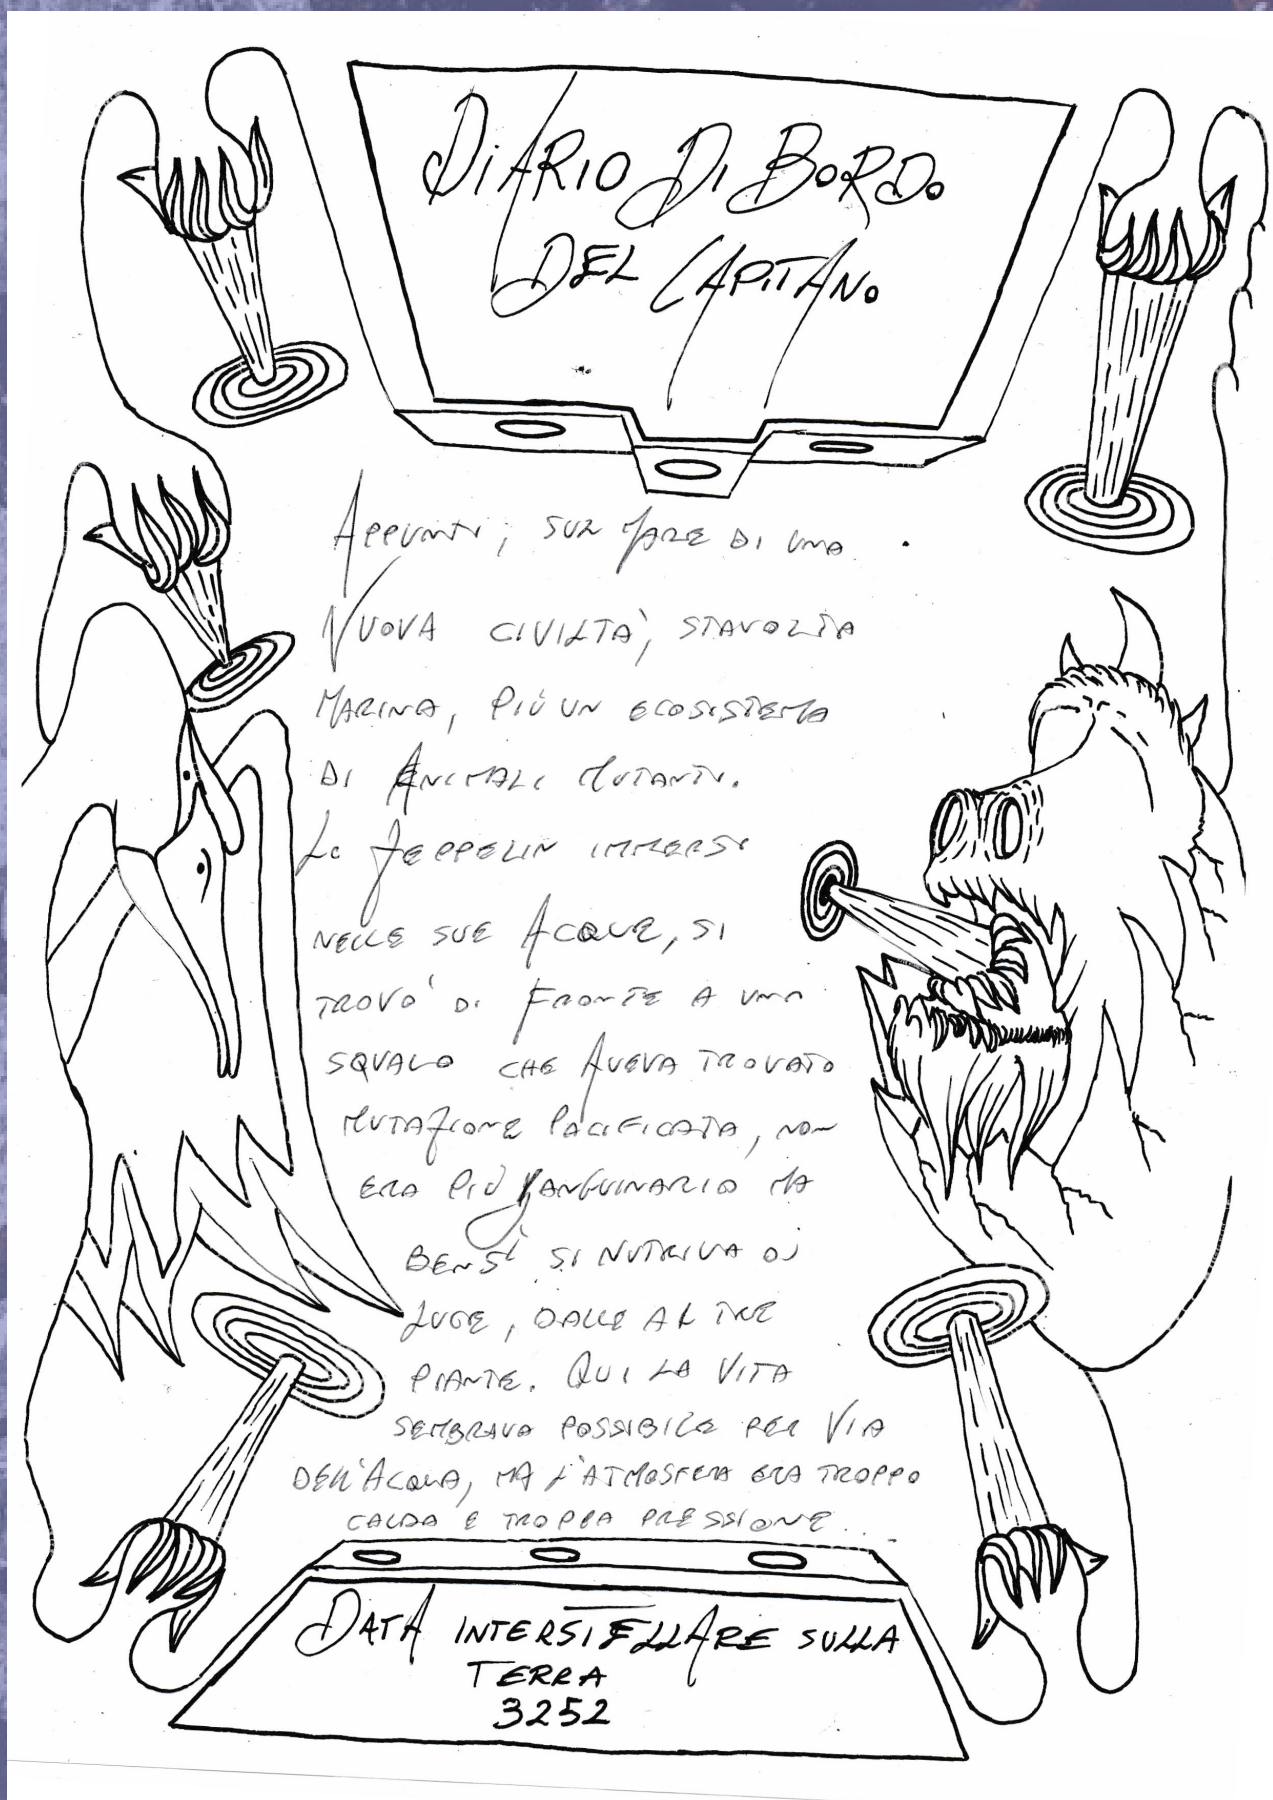 DIARIO DI BORDO
DEL CAPITANO
APPUNTI, SUL MARE DI UNA
NUOVA CIVILTA', STAVOLTA
MARINA, PIÙ UN ECOSISTEMA
DI ANIMALI MUTANTI.
LO ZEPPELIN IMMERSI
NELLE SUE ACQUE, SI
TROVO' DI FRONTE A UNO
SQUALO CHE AVEVA TROVATO
MUTAZIONE PACIFICATA, NON
ERA PIÙ SANGUINARIO MA
BENSÌ SI NUTRIVA DI
LUCE, DALLE ALTRE
PIANTE. QUI LA VITA
SEMBRAVA POSSIBILE PER VIA
DELL'ACQUA, MA L'ATMOSFERA ERA TROPPO
CALDA E TROPPA PRESSIONE...
DATA INTERSTELLARE SULLA
TERRA
3252